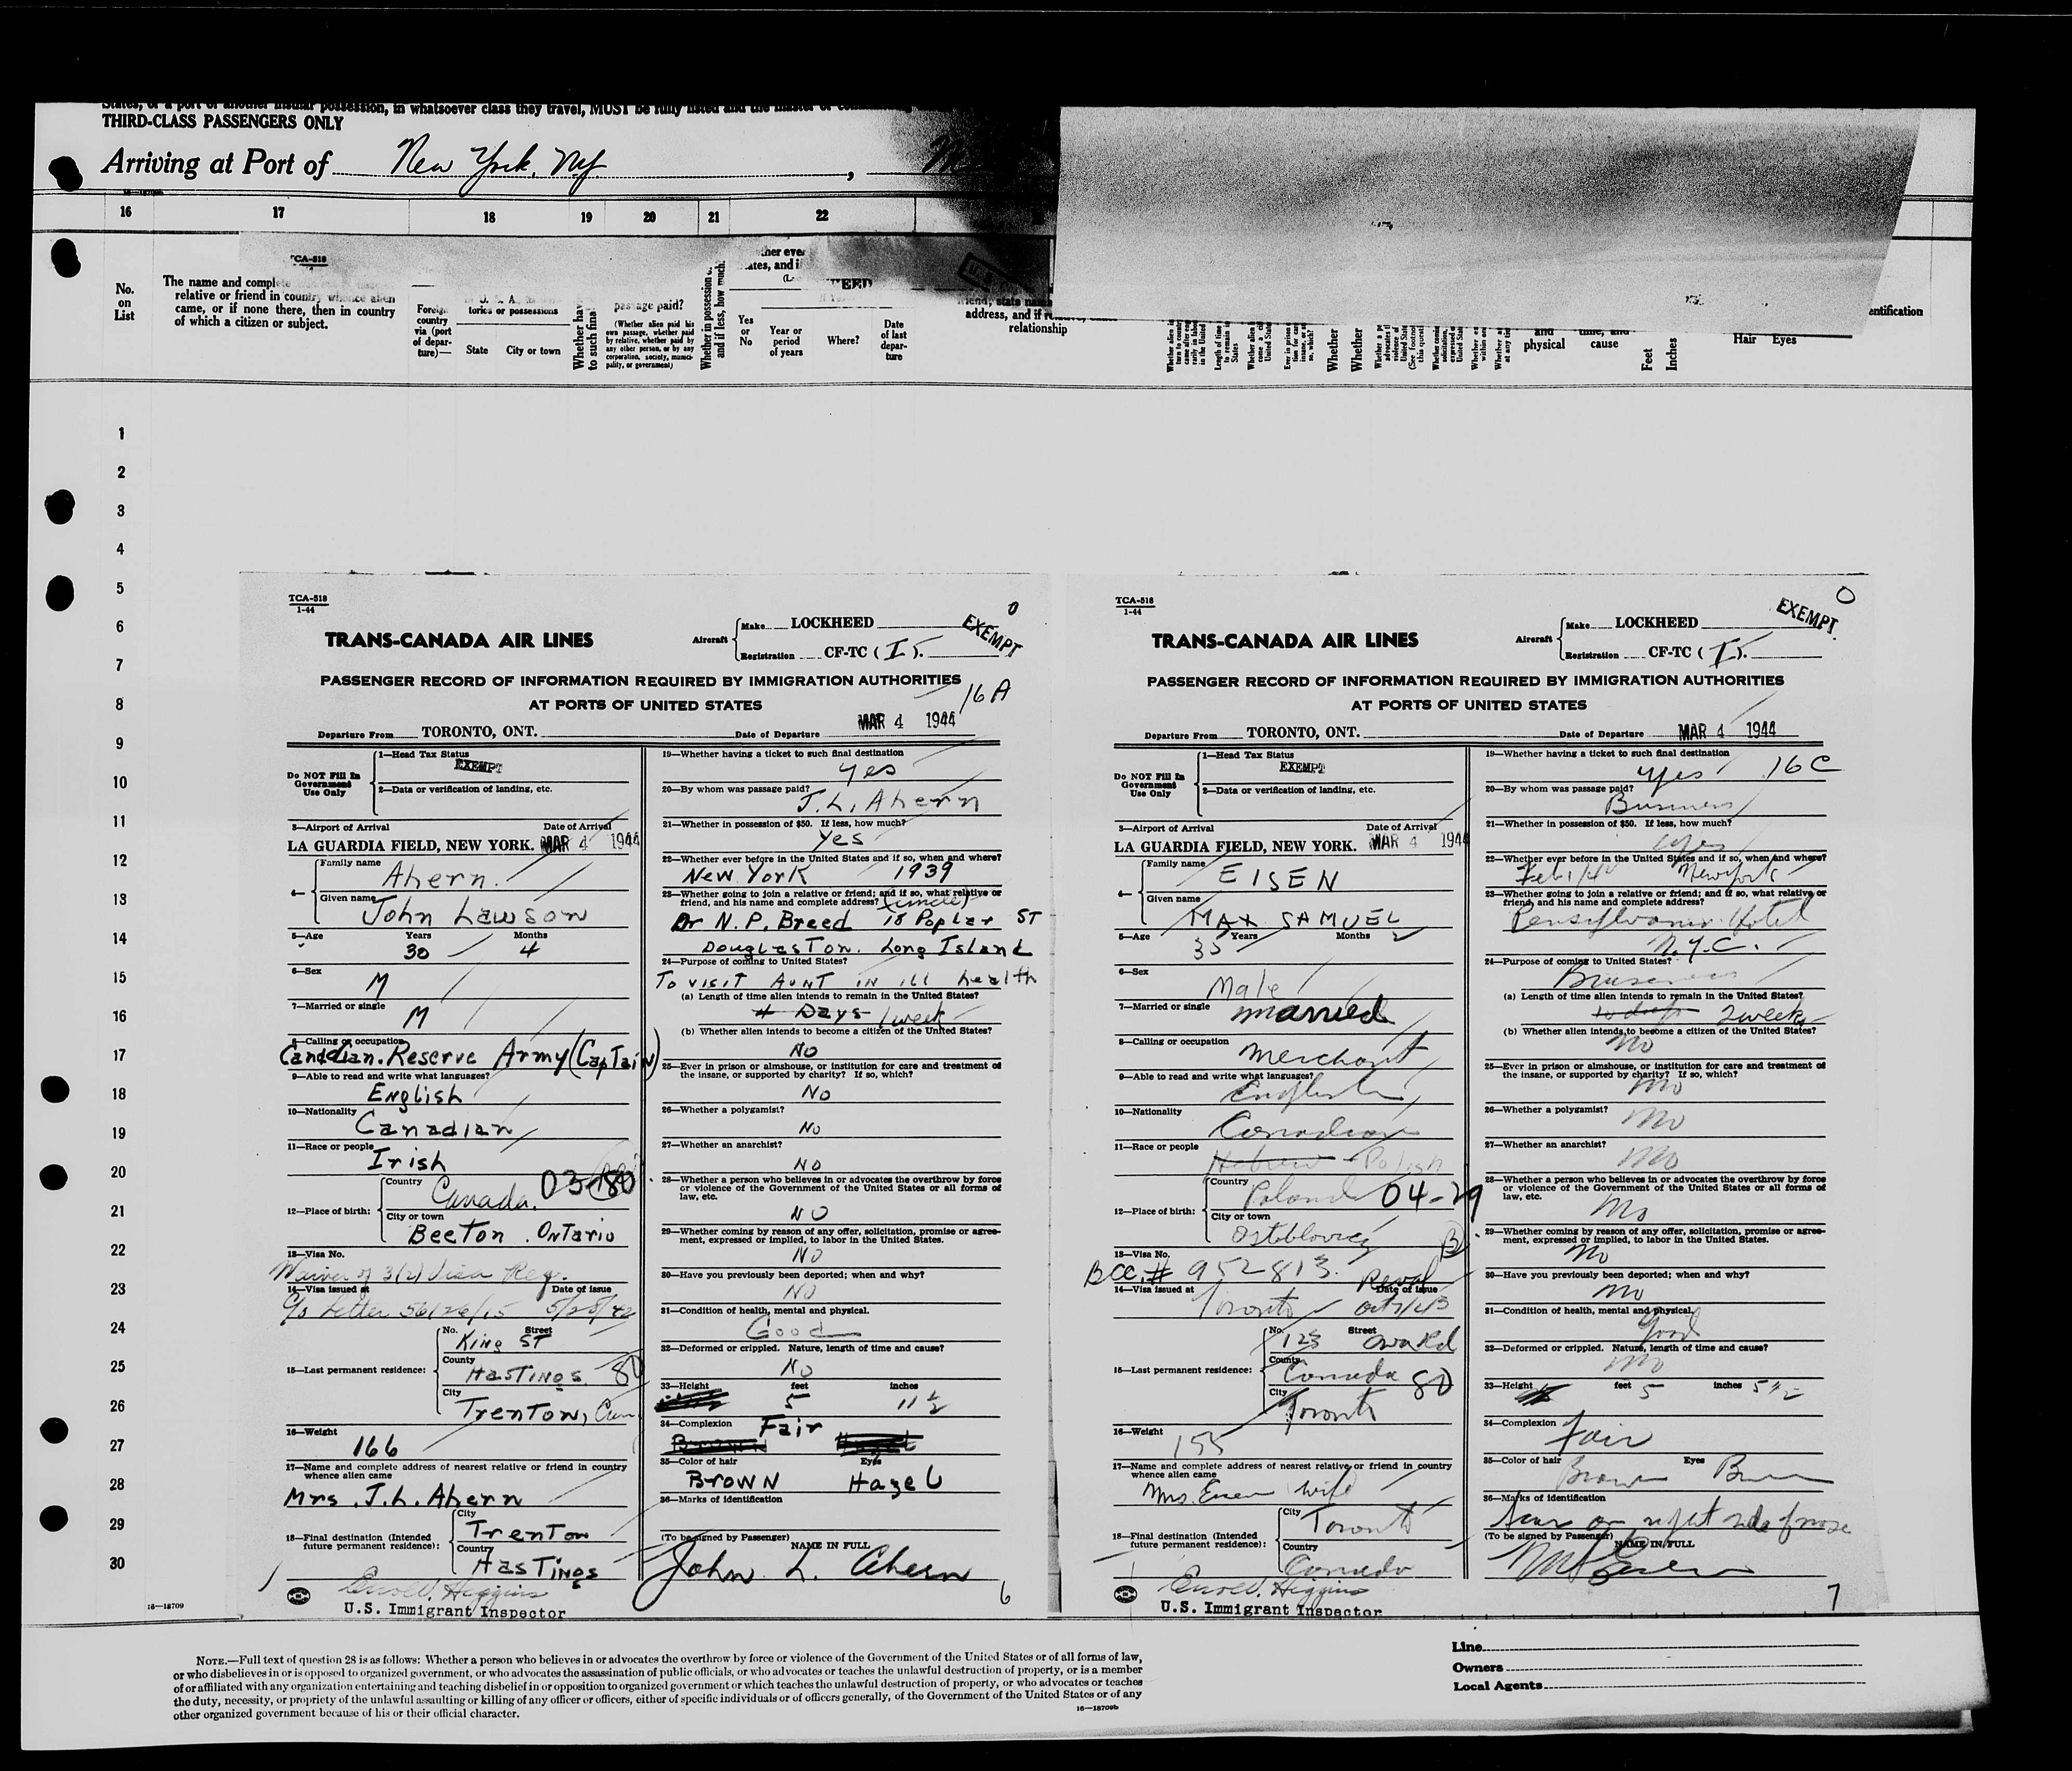 THIRD-CLASS PASSENGERS ONLY
Arriving at Port of New York, NY,
16 17 18 19 20 21 22
No. on List
The name and complete
relative or friend in country whence alien
came, or if none there, then in country
of which a citizen or subject.
Foreign country via (port of departure)—
State City or town
passage paid?
(Whether alien paid his own passage, whether paid by relative, whether paid by any other person, or by any corporation, society, municipality, or government)
Yes or No
Year or period of years
Where?
Date of last departure
address, and if
relationship
and physical
cause
Feet
Inches
Hair Eyes
1
2
3
4
5
6
7
8
9
10
11
12
13
14
15
16
17
18
19
20
21
22
23
24
25
26
27
28
29
30
TCA-518
1-44
TRANS-CANADA AIR LINES
Aircraft
Make LOCKHEED
Registration CF-TC (I).
EXEMPT
PASSENGER RECORD OF INFORMATION REQUIRED BY IMMIGRATION AUTHORITIES
AT PORTS OF UNITED STATES
16 A
Departure From TORONTO, ONT. Date of Departure MAR 4 1944
Do NOT Fill In
Government
Use Only
1—Head Tax Status
EXEMPT
2—Data or verification of landing, etc.
3—Airport of Arrival Date of Arrival
LA GUARDIA FIELD, NEW YORK. MAR 4 1944
4— Family name
Ahern.
Given name
John Lawson
5—Age Years Months
30 4
6—Sex
M
7—Married or single
M
8—Calling or occupation
Canadian. Reserve Army (Captain)
9—Able to read and write what languages?
English
10—Nationality
Canadian
11—Race or people
Irish
12—Place of birth: Country
Canada. 03-80
City or town
Beeton. Ontario
13—Visa No.
Waiver of 3(2) Visa Reg.
14—Visa issued at Date of issue
Letter 56/26/15
15—Last permanent residence: No. Street
King ST
County
Hastings. 80
City
Trenton, Can
16—Weight
166
17—Name and complete address of nearest relative or friend in country
whence alien came
Mrs. J.L. Ahern
18—Final destination (Intended
future permanent residence): City
Trenton
Country
Hastings
U.S. Immigrant Inspector
19—Whether having a ticket to such final destination
yes
20—By whom was passage paid?
J.L. Ahern
21—Whether in possession of $50. If less, how much?
Yes
22—Whether ever before in the United States and if so, when and where?
New York 1939
23—Whether going to join a relative or friend; and if so, what relative or
friend, and his name and complete address? (uncle)
Dr N.P. Breed 18 Poplar ST
Douglaston. Long Island
24—Purpose of coming to United States?
To visit Aunt in ill health
(a) Length of time alien intends to remain in the United States?
4 Days 1 week
(b) Whether alien intends to become a citizen of the United States?
No
25—Ever in prison or almshouse, or institution for care and treatment of
the insane, or supported by charity? If so, which?
No
26—Whether a polygamist?
No
27—Whether an anarchist?
No
28—Whether a person who believes in or advocates the overthrow by force
or violence of the Government of the United States or all forms of
law, etc.
NO
29—Whether coming by reason of any offer, solicitation, promise or agree-
ment, expressed or implied, to labor in the United States.
NO
30—Have you previously been deported; when and why?
NO
31—Condition of health, mental and physical.
Good
32—Deformed or crippled. Nature, length of time and cause?
No
33—Height feet inches
5 11 1/2
34—Complexion Fair
35—Color of hair Eyes
Brown Hazel
36—Marks of identification
(To be signed by Passenger)
NAME IN FULL
John L. Ahern
6
TCA-518
1-44
TRANS-CANADA AIR LINES
Aircraft
Make LOCKHEED
Registration CF-TC (I).
EXEMPT
PASSENGER RECORD OF INFORMATION REQUIRED BY IMMIGRATION AUTHORITIES
AT PORTS OF UNITED STATES
Departure From TORONTO, ONT. Date of Departure MAR 4 1944
Do NOT Fill In
Government
Use Only
1—Head Tax Status
EXEMPT
2—Data or verification of landing, etc.
3—Airport of Arrival Date of Arrival
LA GUARDIA FIELD, NEW YORK. MAR 4 1944
4— Family name
EISEN
Given name
MAX SAMUEL
5—Age Years Months
35 2
6—Sex
Male
7—Married or single
married
8—Calling or occupation
Merchant
9—Able to read and write what languages?
English
10—Nationality
Canadian
11—Race or people
Hebrew Polish
12—Place of birth: Country
Poland 04-29
City or town
13—Visa No.
BCC. # 952813.
14—Visa issued at Date of issue
Toronto
15—Last permanent residence: No. Street
123
County
Canada 80
City
Toronto
16—Weight
155
17—Name and complete address of nearest relative or friend in country
whence alien came
Mrs. Eisen wife
18—Final destination (Intended
future permanent residence): City
Toronto
Country
Canada
U.S. Immigrant Inspector
19—Whether having a ticket to such final destination
yes 16 C
20—By whom was passage paid?
Business
21—Whether in possession of $50. If less, how much?
yes
22—Whether ever before in the United States and if so, when and where?
New York
23—Whether going to join a relative or friend; and if so, what relative or
friend, and his name and complete address?
Pensylvania Hotel
N.Y.C.
24—Purpose of coming to United States?
Business
(a) Length of time alien intends to remain in the United States?
10 days 2 weeks
(b) Whether alien intends to become a citizen of the United States?
No
25—Ever in prison or almshouse, or institution for care and treatment of
the insane, or supported by charity? If so, which?
No
26—Whether a polygamist?
No
27—Whether an anarchist?
No
28—Whether a person who believes in or advocates the overthrow by force
or violence of the Government of the United States or all forms of
law, etc.
No
29—Whether coming by reason of any offer, solicitation, promise or agree-
ment, expressed or implied, to labor in the United States.
No
30—Have you previously been deported; when and why?
No
31—Condition of health, mental and physical.
Good
32—Deformed or crippled. Nature, length of time and cause?
No
33—Height feet 5 inches 5 1/2
34—Complexion
Fair
35—Color of hair Eyes
Brown
36—Marks of identification
Scar on right side of nose
(To be signed by Passenger)
NAME IN FULL
7
16—18709
NOTE.—Full text of question 28 is as follows: Whether a person who believes in or advocates the overthrow by force or violence of the Government of the United States or of all forms of law,
or who disbelieves in or is opposed to organized government, or who advocates the assassination of public officials, or who advocates or teaches the unlawful destruction of property, or is a member
of or affiliated with any organization entertaining and teaching disbelief in or opposition to organized government or which teaches the unlawful destruction of property, or who advocates or teaches
the duty, necessity, or propriety of the unlawful assaulting or killing of any officer or officers, either of specific individuals or of officers generally, of the Government of the United States or of any
other organized government because of his or their official character.
16—18709b
Line
Owners
Local Agents